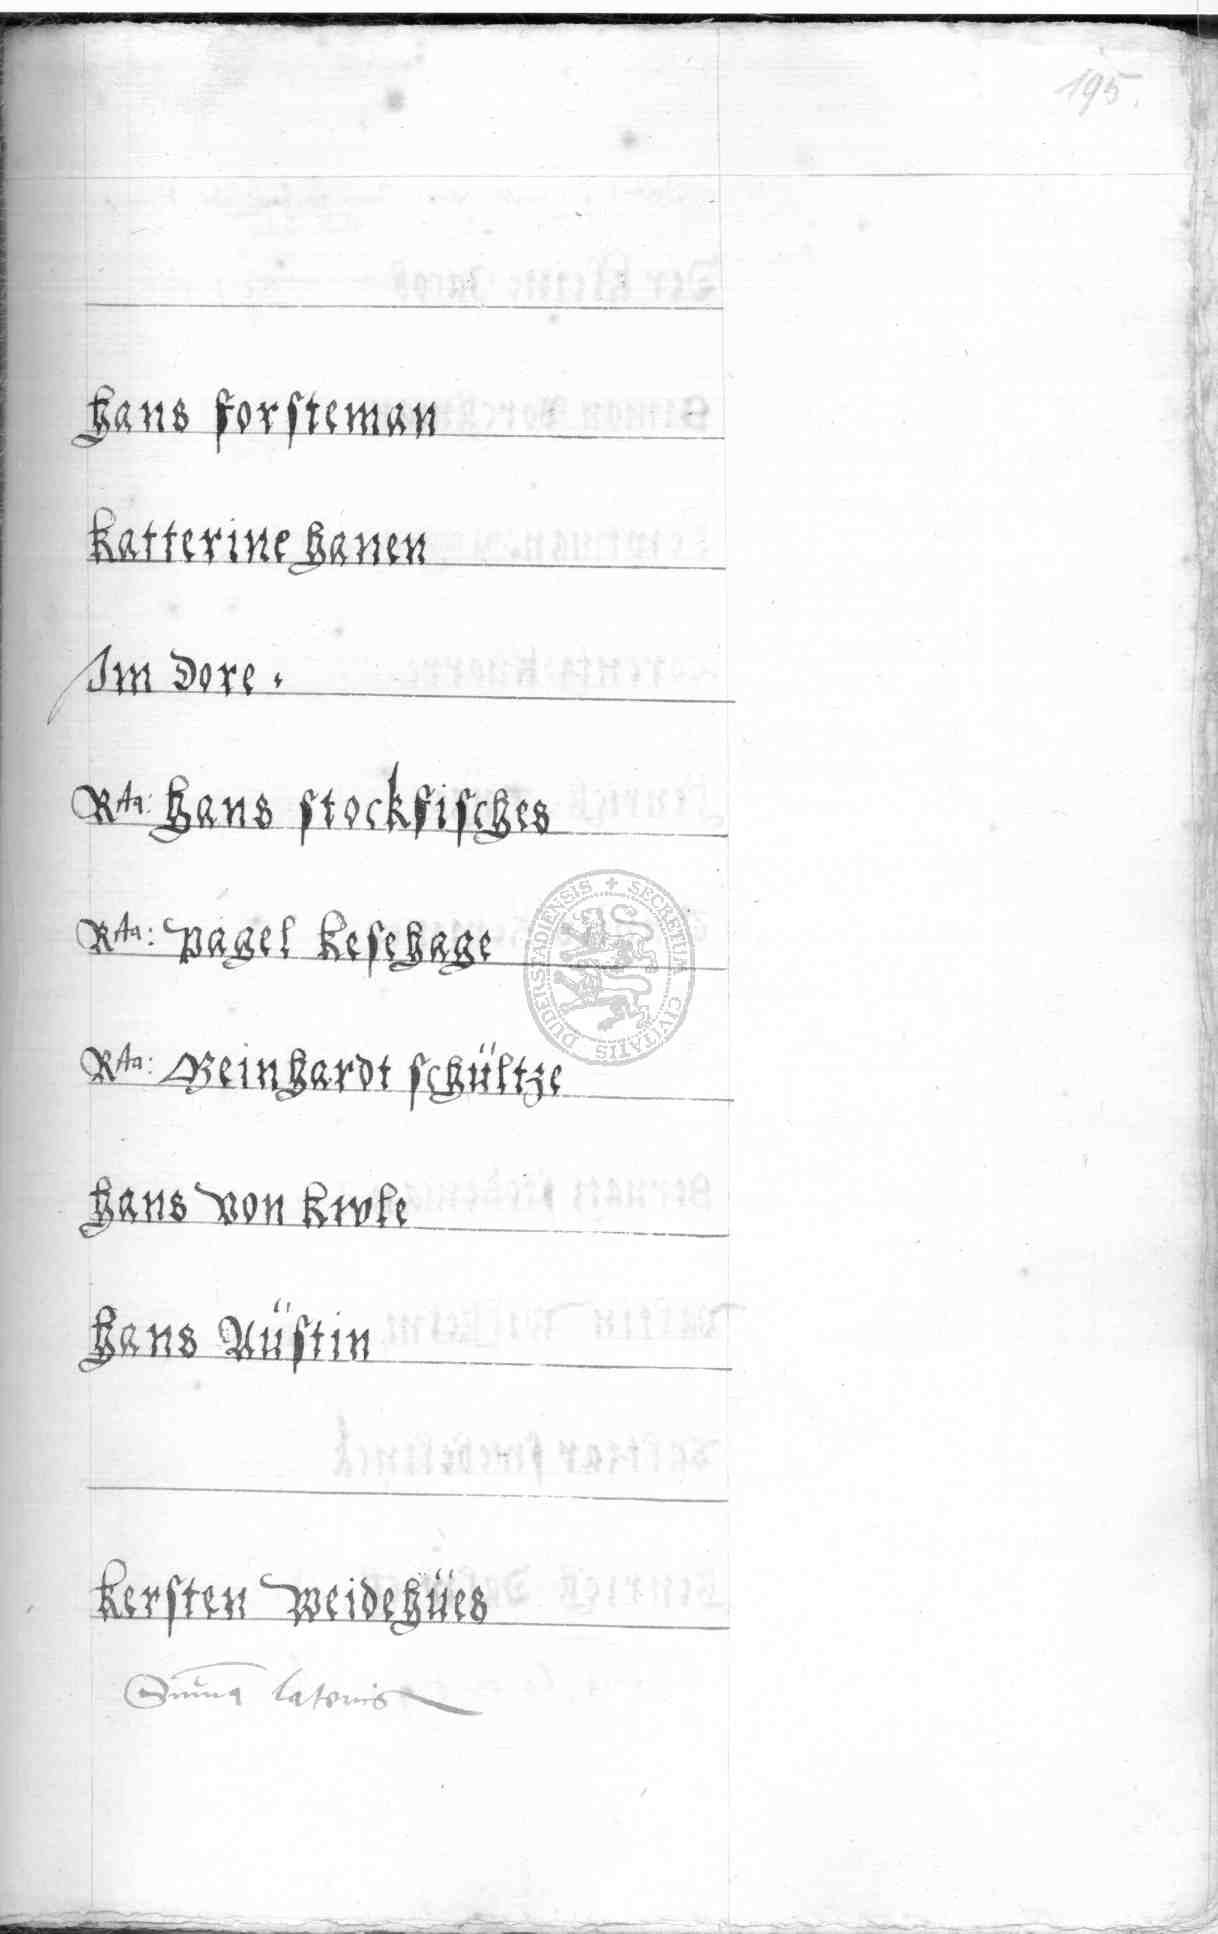 195.
Hans forsteman
Katterine Hanen
Im Dore
Rta: Hans stockfisches
Rta: Pagel Kesehage
Rta: Weinhardt schültze
Hans von Kwle
Hans Aüstin
Kersten Weidehües
Suma lateris
SECRETUM CIVITATIS DUDERSTADIENSIS